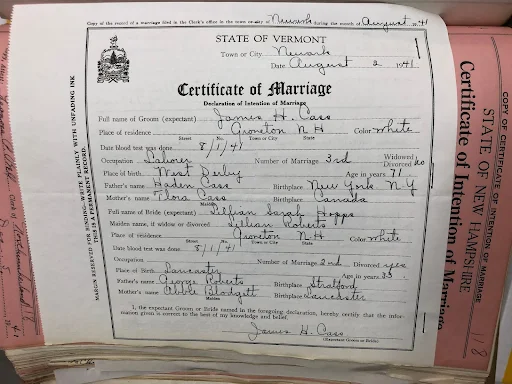 Copy of the record of a marriage filed in the Clerk's office in the town or city of Newark during the month of August 1941
STATE OF VERMONT
Town or City Newark
Date August 2 1941
Certificate of Marriage
Declaration of Intention of Marriage
Full name of Groom (expectant) James H. Cass
Place of residence Groveton N H Color white
Street No. Town or City State
Date blood test was done 8/1/41
Occupation Laborer Number of Marriage 3rd Widowed Divorced
Place of birth West Derby Age in years 71
Father's name Haden Cass Birthplace New York N.Y
Mother's name Flora Cass Birthplace Canada
Maiden
Full name of Bride (expectant) Lillian Sarah Hopps
Maiden name, if widow or divorced Lillian Roberts
Place of residence Groveton N H Color white
Street No. Town or City State
Date blood test was done 8/1/41
Occupation Number of Marriage 2nd Divorced yes
Place of Birth Lancaster Age in years
Father's name George Roberts Birthplace Stratford
Mother's name Abbie Blodgett Birthplace Lancaster
Maiden
I, the expectant Groom or Bride named in the foregoing declaration, hereby certify that the information given is correct to the best of my knowledge and belief.
James H. Cass
(Expectant Groom or Bride)
MARGIN RESERVED FOR BINDING-WRITE PLAINLY WITH UNFADING INK
THIS IS A PERMANENT RECORD.
COPY OF CERTIFICATE OF INTENTION OF MARRIAGE
STATE OF NEW HAMPSHIRE
Certificate of Intention of Marriage